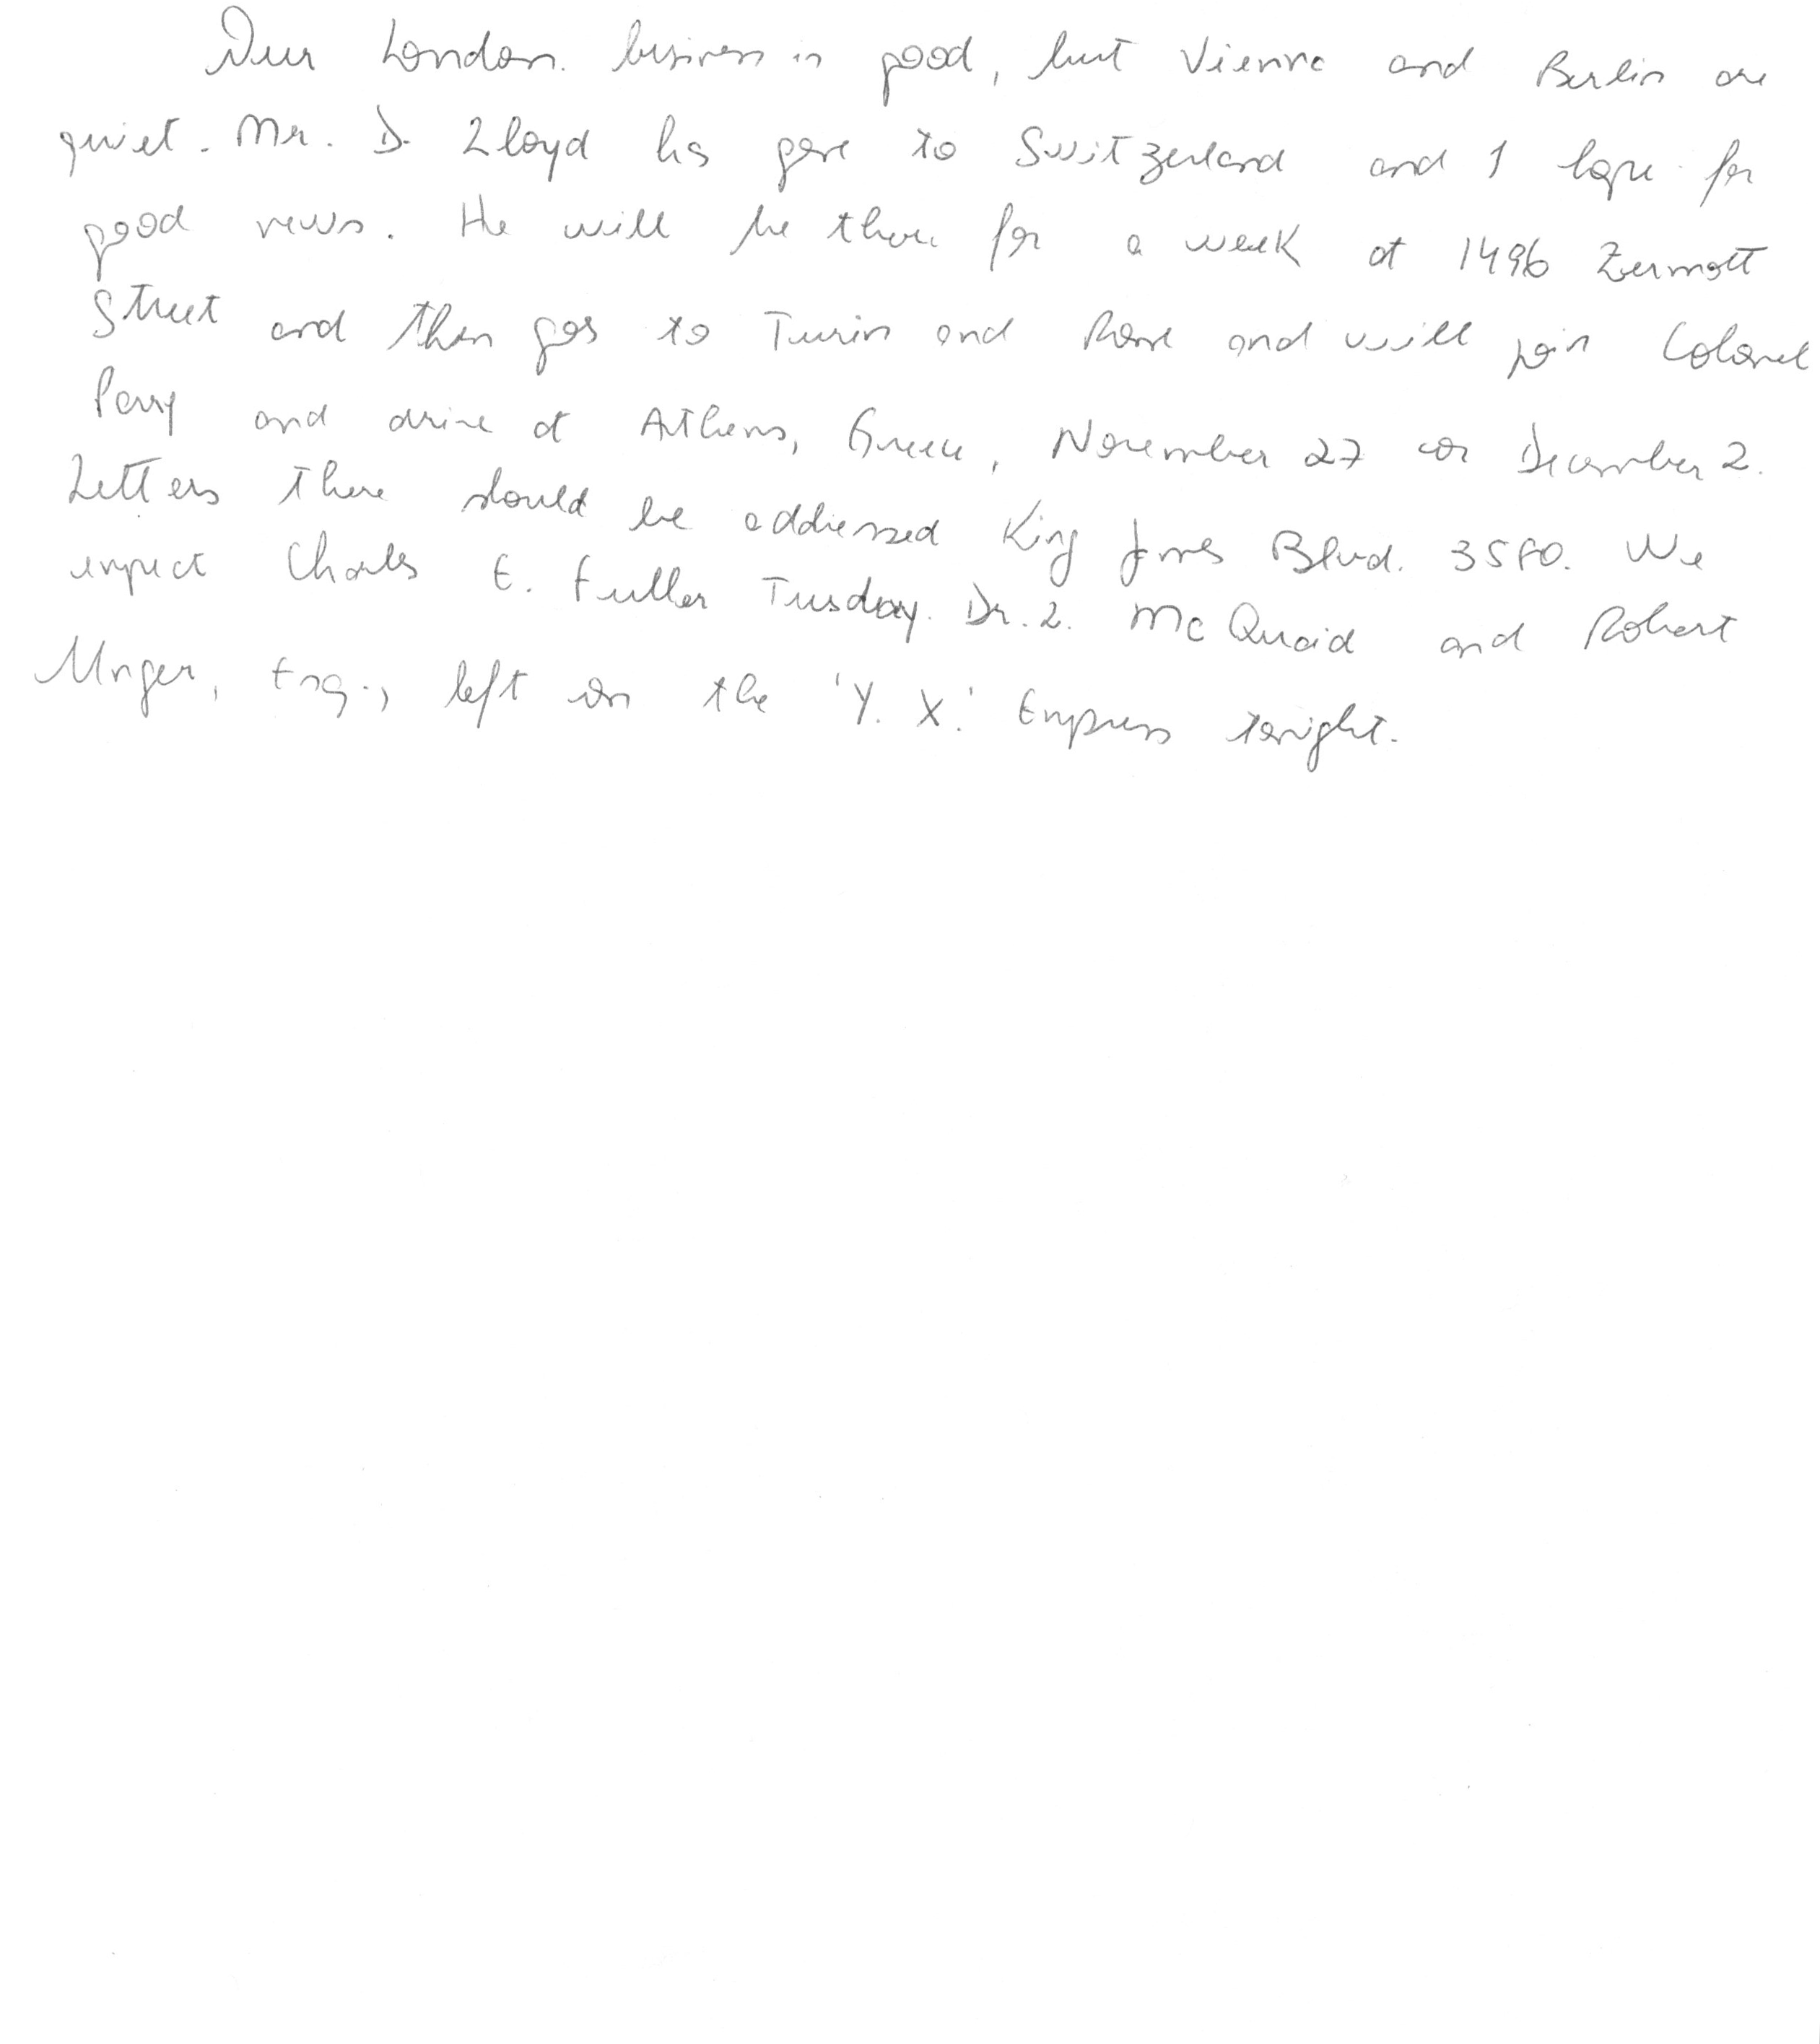 Our London business is good, but Vienna and Berlin are
quiet. Mr. D. Lloyd has gone to Switzerland and I hope for
good news. He will be there for a week at 1496 Zermott
Street and then goes to Turin and Rome and will join Colonel
Parry and arrive at Athens, Greece, November 27 or December 2.
Letters there should be addressed King James Blvd. 3580. We
expect Charles E. Fuller Tuesday. Dr. L. McQuaid and Robert
Unger, Esq., left on the 'Y. X.' Express tonight.